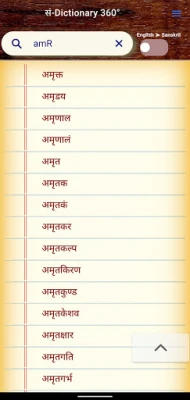 सं-Dictionary 360°
amR
English ➤ Sanskrit
अमृक्त
अमृडय
अमृणाल
अमृणालं
अमृत
अमृतक
अमृतकं
अमृतकर
अमृतकल्प
अमृतकिरण
अमृतकुण्ड
अमृतकेशव
अमृतक्षार
अमृतगति
अमृतगर्भ